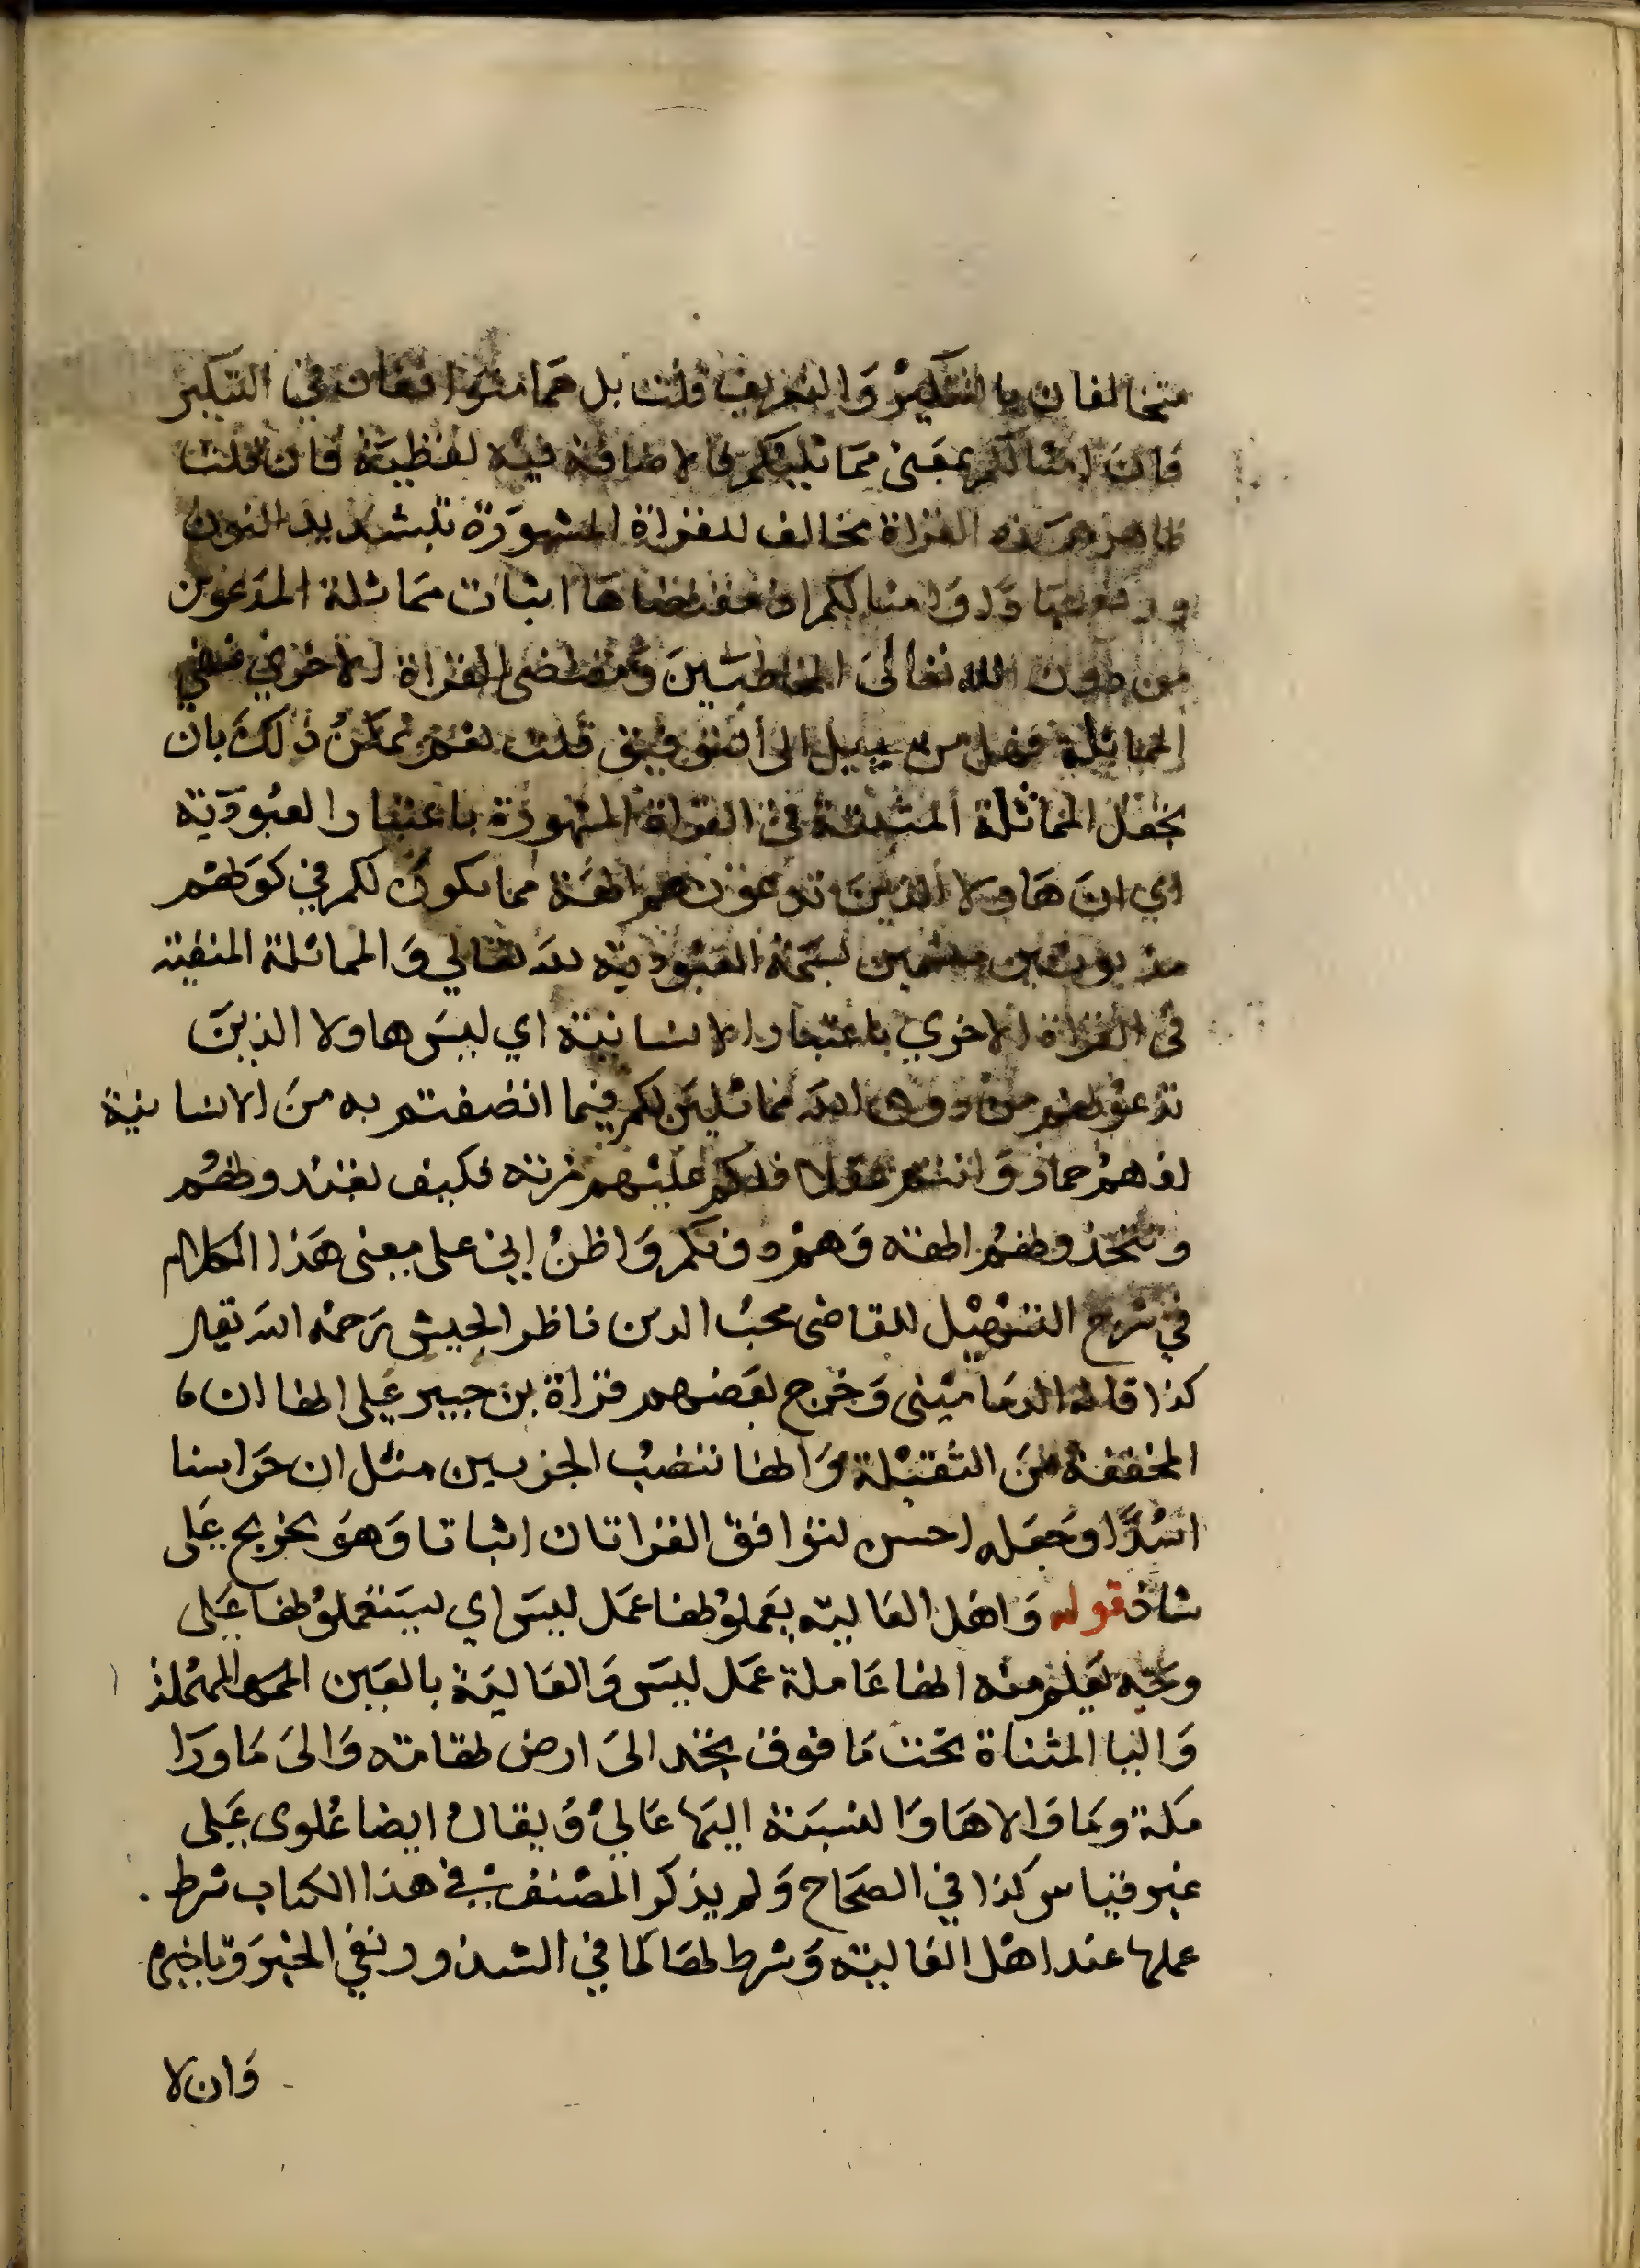 متخالفان بالتنكير والتعريف قلت بل هما متوافقان في التنكير
فان امثالكم بمعنى مماثليكم فالاضافة فيه لفظية فان قلت
ظاهر هذه القراة يخالف للقراة المشهورة بتشديد النون
ورفع عباد وامثالكم اذ مقتضاها اثبات مماثلة المدعوين
من دون الله تعالى للمخاطبين ومقتضى القراة الاخري نفي
المماثلة فهل من سبيل الى التوفيق قلت نعم يمكن ذلك بان
يجعل المماثلة المثبتة في القراة المشهورة باعتبار العبودية
اي ان هاولا الذين تدعونهم الهة مماثلون لكم في كونهم
مربوبين متسمين بسمة العبودية لله تعالي والمماثلة المنفية
في القراة الاخري باعتبار الانسانية اي ليس هاولا الذين
تدعونهم من دون الله مماثلين لكم فيما اتصفتم به من الانسانية
اذ هم جماد وانتم عقلا فلكم عليهم مزية فكيف تعبدونهم
وتتخذونهم الهة وهم دونكم واظن اني على معنى هذا الكلام
في شرح التسهيل للقاضى محب الدين ناظر الجيش رحمه الله تعالى
كذا قاله الدمامينى وخرج بعضهم قراة بن جبير على انها ان
المخففة من الثقيلة وانها تنصب الجزين مثل ان حراسنا
اسدا وجعله احسن لتوافق القراتان اثباتا وهو تخريج على
شاذ قوله واهل العالية يعملونها عمل ليس اي يستعملونها على
وجه يعلم منه انها عاملة عمل ليس والعالية بالعين المهملة
واليا المثناة تحت ما فوق نجد الى ارض تهامة والى ما ورا
مكة وما والاها والنسبة اليها عالي ويقال ايضا علوى على
غير قياس كذا في الصحاح ولم يذكر المصنف في هذا الكتاب شرط
عملها عند اهل العالية وشرط لها كما في الشذور نفي الخبر وتاخيره
وان لا